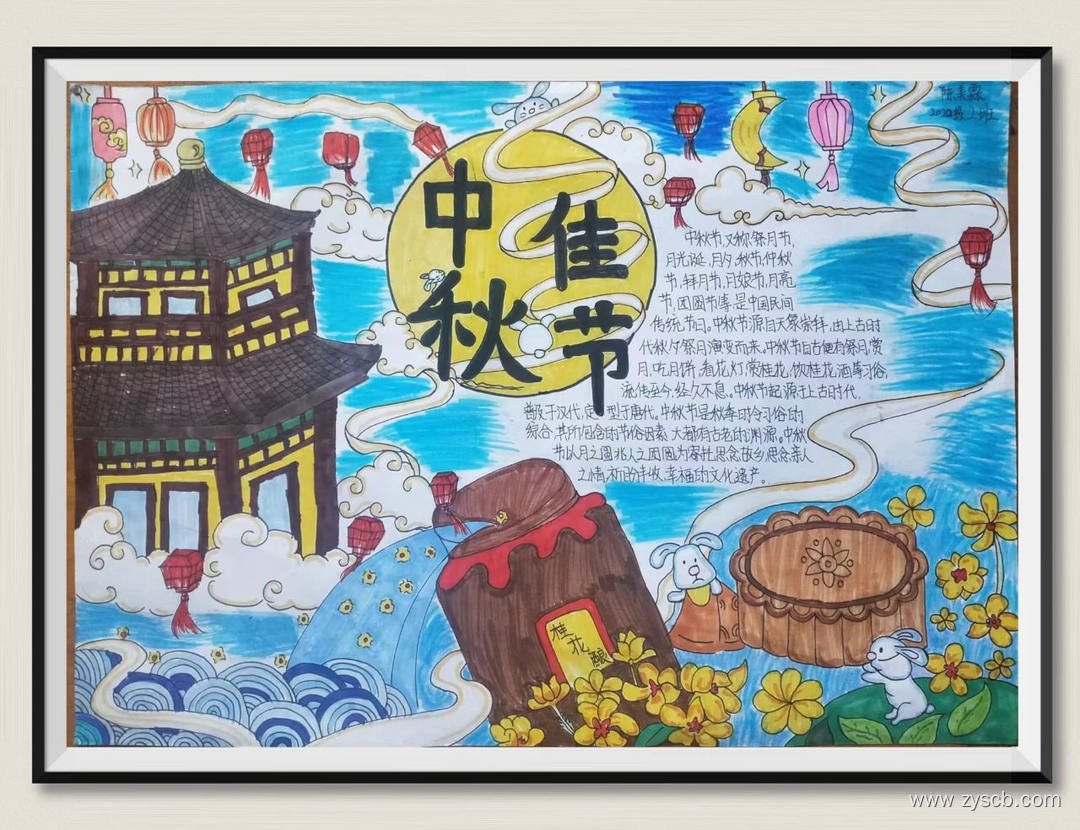 中秋
佳节
2022级
中秋节,又称祭月节,
月光诞,月夕,秋节,仲秋
节,拜月节,月娘节,月亮
节,团圆节等,是中国民间
传统节日。中秋节源自天象崇拜,由上古时
代秋夕祭月演变而来。中秋节自古便有祭月,赏
月,吃月饼,看花灯,赏桂花,饮桂花酒等习俗,
流传至今,经久不息。中秋节起源于上古时代,
普及于汉代,定型于唐代。中秋节是秋季时令习俗的
综合,其所包含的节俗因素,大都有古老的渊源。中秋
节以月之圆兆人之团圆,为寄托思念故乡,思念亲人
之情,祈盼丰收,幸福的文化遗产。
桂花酿
www.zyscb.com